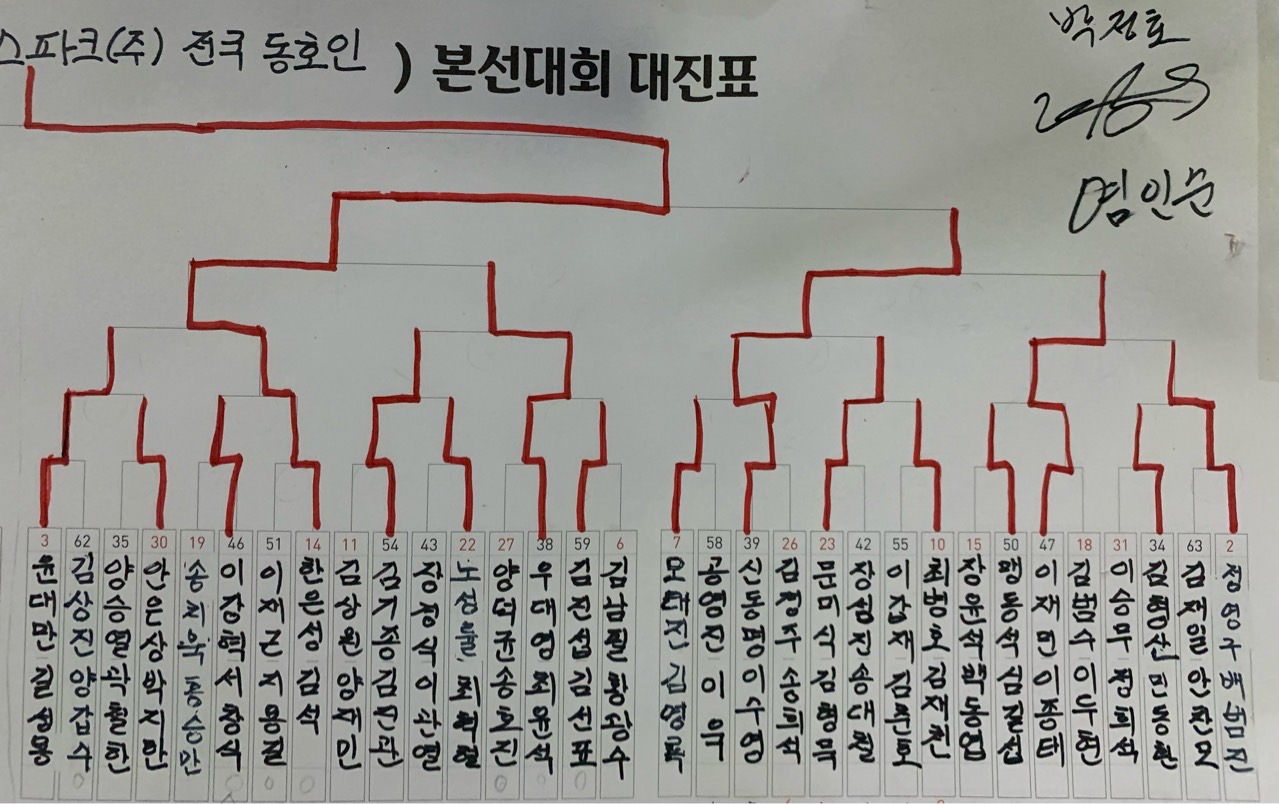 스파크(주) 전국 동호인 ) 본선대회 대진표
박정호
염인문
3 62 35 30 19 46 51 14 11 54 43 22 27 38 59 6 7 58 39 26 23 42 55 10 15 50 47 18 31 34 63 2
윤대만 길성용
김상진 양갑수
양승열 곽철한
안은상 박지만
이강혁 서창식
이재근 지용길
한은성 김석
김상원 양재민
김기종 김진관
장경석 이관열
양덕균 송호진
우대영 최윤석
김진섭 김선표
김남필 황광수
오태진 김영록
공영진 이욱
신동명 이수영
김정주 송희석
문미식 김형묵
장섬진 송대철
이강재 김훈토
최병호 김재천
장윤석 백동엽
맹동석 심길섭
이재민 이종태
김범수 이두현
이승무 정희석
김혁산 민동환
김재일 안찬모
정영구 배범진